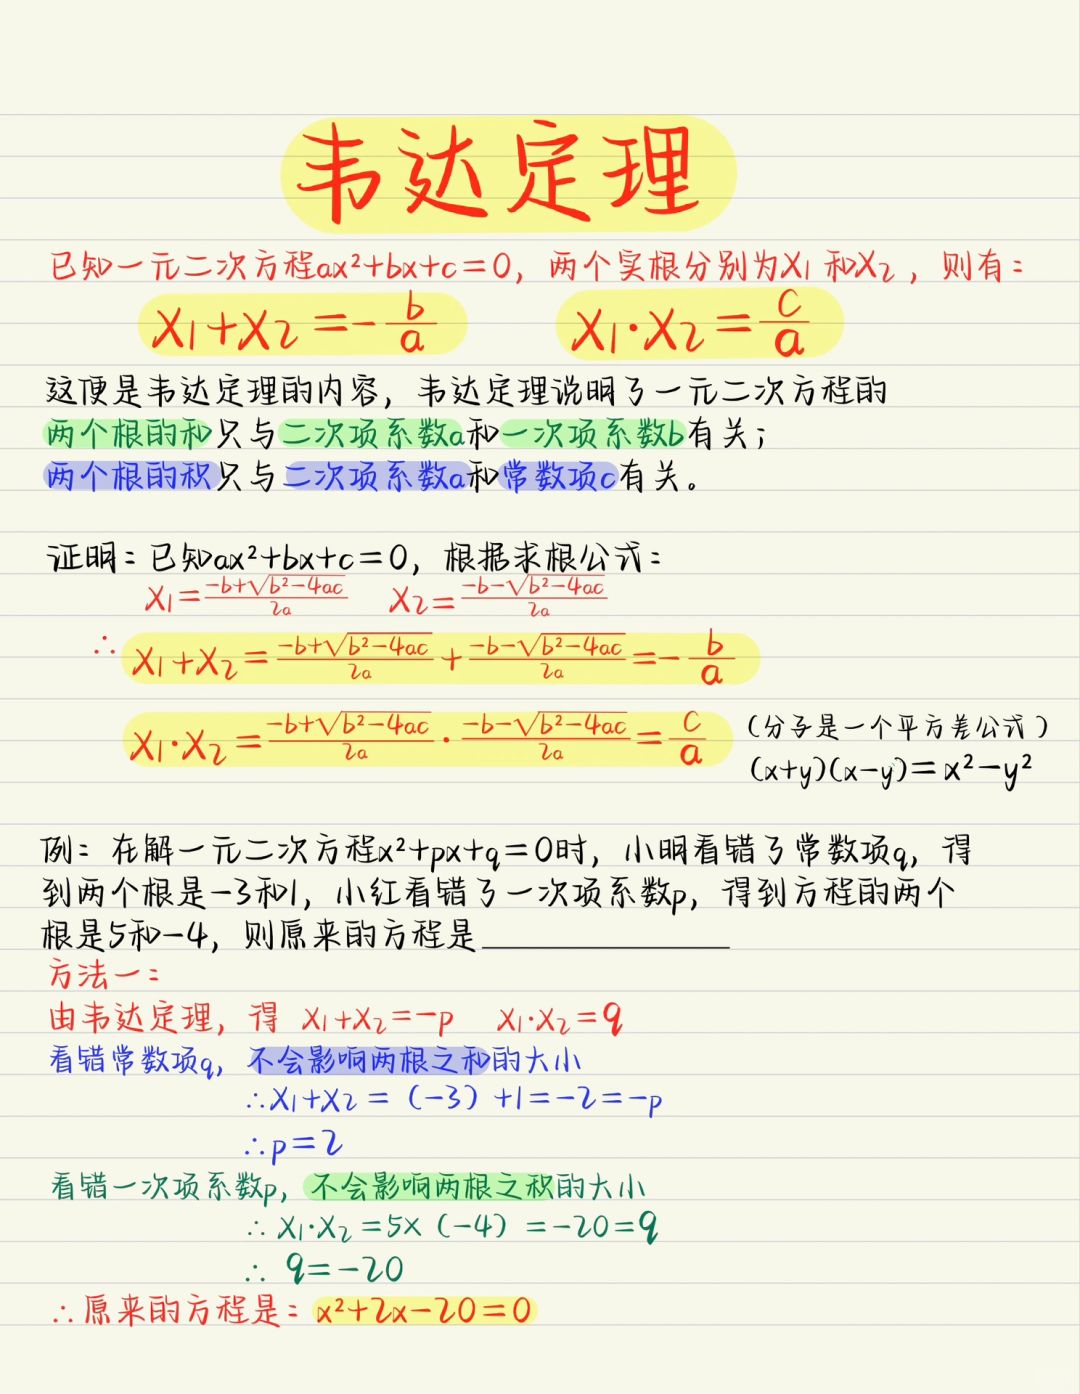 韦达定理
已知一元二次方程ax²+bx+c=0, 两个实根分别为x₁和x₂, 则有:
x₁+x₂=-b/a x₁·x₂=c/a
这便是韦达定理的内容, 韦达定理说明了一元二次方程的
两个根的和只与二次项系数a和一次项系数b有关;
两个根的积只与二次项系数a和常数项c有关。
证明: 已知ax²+bx+c=0, 根据求根公式:
x₁=(-b+√(b²-4ac))/2a x₂=(-b-√(b²-4ac))/2a
∴ x₁+x₂=(-b+√(b²-4ac))/2a+(-b-√(b²-4ac))/2a=-b/a
x₁·x₂=(-b+√(b²-4ac))/2a·(-b-√(b²-4ac))/2a=c/a (分子是一个平方差公式)
(x+y)(x-y)=x²-y²
例: 在解一元二次方程x²+px+q=0时, 小明看错了常数项q, 得
到两个根是-3和1, 小红看错了一次项系数p, 得到方程的两个
根是5和-4, 则原来的方程是________
方法一:
由韦达定理, 得 x₁+x₂=-p x₁·x₂=q
看错常数项q, 不会影响两根之和的大小
∴x₁+x₂=(-3)+1=-2=-p
∴p=2
看错一次项系数p, 不会影响两根之积的大小
∴ x₁·x₂=5×(-4)=-20=q
∴ q=-20
∴原来的方程是: x²+2x-20=0